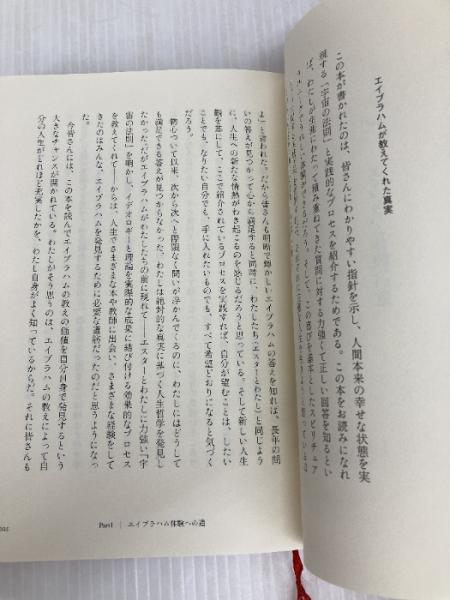 エイブラハムが教えてくれた真実
この本が書かれたのは、皆さんにわかりやすい指針を示し、人間本来の幸せな状態を実
現する「宇宙の法則」と実践的なプロセスを紹介するためである。この本をお読みになれ
ば、わたしが生涯にわたって積み重ねてきた質問に対する力強くて正しい回答を知るとい
そして、この喜びを基本としたスピリチュア
よ」と言われた。だから皆さんも明晰で輝かしいエイブラハムの答えを知れば、長年の問
いの答えが見つかって心から満足すると同時に、わたしたち（エスターとわたし）と同じよう
に、人生への新たな情熱がわき起こるのを感じるだろうと思っている。そして新しい人生
観を基にして、ここで紹介されているプロセスを実践すれば、自分が望むことは、したい
ことでも、なりたい自分でも、手に入れたいものでも、すべて希望どおりになると気づく
物心ついて以来、次から次へと際限なく問いが浮かんでくるのに、わたしにはどうして
も満足できる答えが見つからなかった。わたしは絶対的な真実に基づく人生哲学を発見し
たかった。だがエイブラハムがわたしたちの前に現れて――エスターとわたしに力強い「宇
宙の法則」を明かし、イデオロギーと理論を実際的な成果に結び付ける効果的なプロセス
を教えてくれて――からは、人生でさまざまな本や教師に出会い、さまざまな経験をして
きたのはみんな、エイブラハムを発見するために必要な道筋だったのだと思うようになっ
た。
今皆さんには、この本を読んでエイブラハムの教えの価値を自分自身で発見するという
大きなチャンスが開かれている。わたしがそう思うのは、エイブラハムの教えによって自
分の人生がどれほど充実したかを、わたし自身がよく知っているからだ。それに皆さんも
Part1 | エイブラハム体験への道